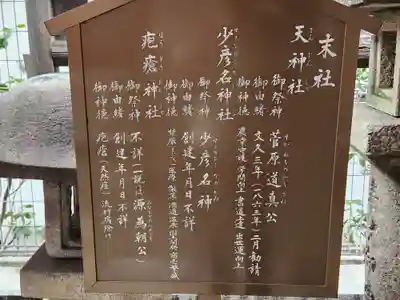 末社
天神社
御祭神 菅原道真公
御由緒 文久三年(一八六三年)二月勧請
御神徳 農業守護 学問向上 書道上達 出世運向上
少彦名神社
御祭神 少彦名神
御由緒 創建年月日不詳
御神徳
疱瘡神社
御祭神 不詳(一説に源為朝公)
御由緒 創建年月日不詳
御神徳 疱瘡(天然痘) 流行病除け